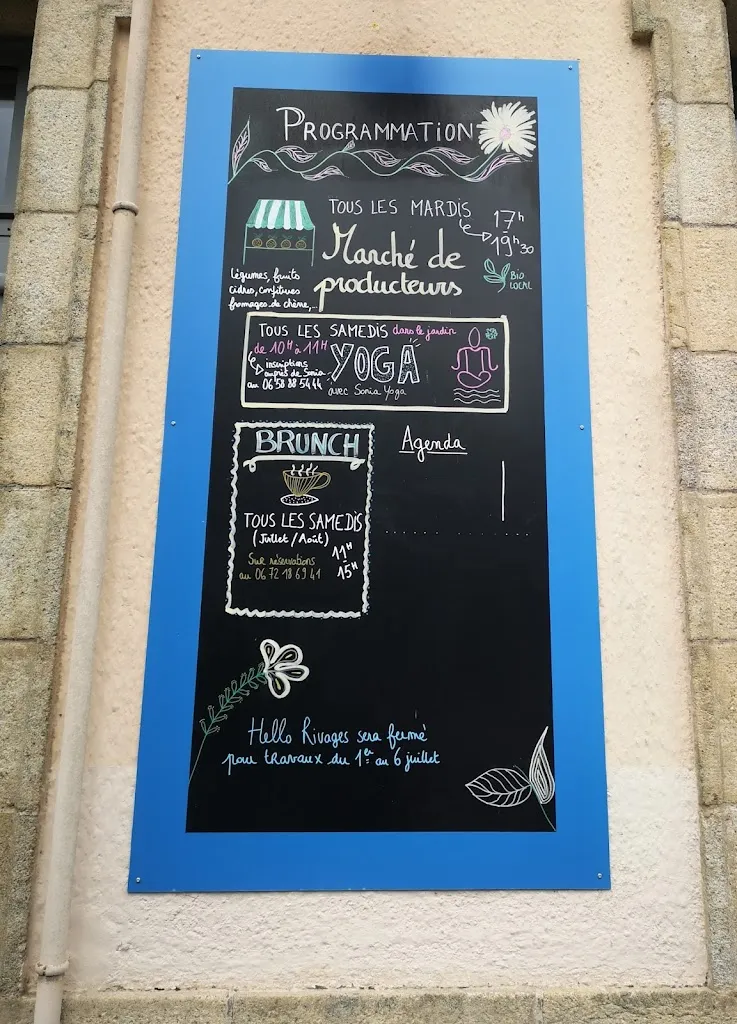 PROGRAMMATION
TOUS LES MARDIS
17h
19h30
Marché de
producteurs
BIO
LOCAL
Légumes, fruits
cidres, confitures
fromages de chèvre,...
TOUS LES SAMEDIS dans le jardin
de 10H à 11H
YOGA
inscriptions
auprès de Sonia
au 06 58 88 54 44
avec Sonia Yoga
BRUNCH
TOUS LES SAMEDIS
(Juillet / Août)
11H
15H
Sur réservations
au 06 72 18 69 41
Agenda
Hello Rivages sera fermé
pour travaux du 1er au 6 juillet